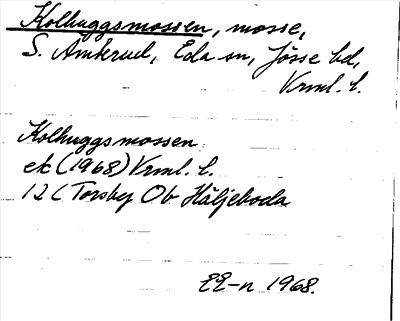 Kolhuggsmossen, mosse,
S. Åmkerud, Eda sn, Jösse hd,
Vrml. l.
Kolhuggsmossen
ek (1968) Vrml. l.
12 C Torsby Ob Häljeboda
1968.